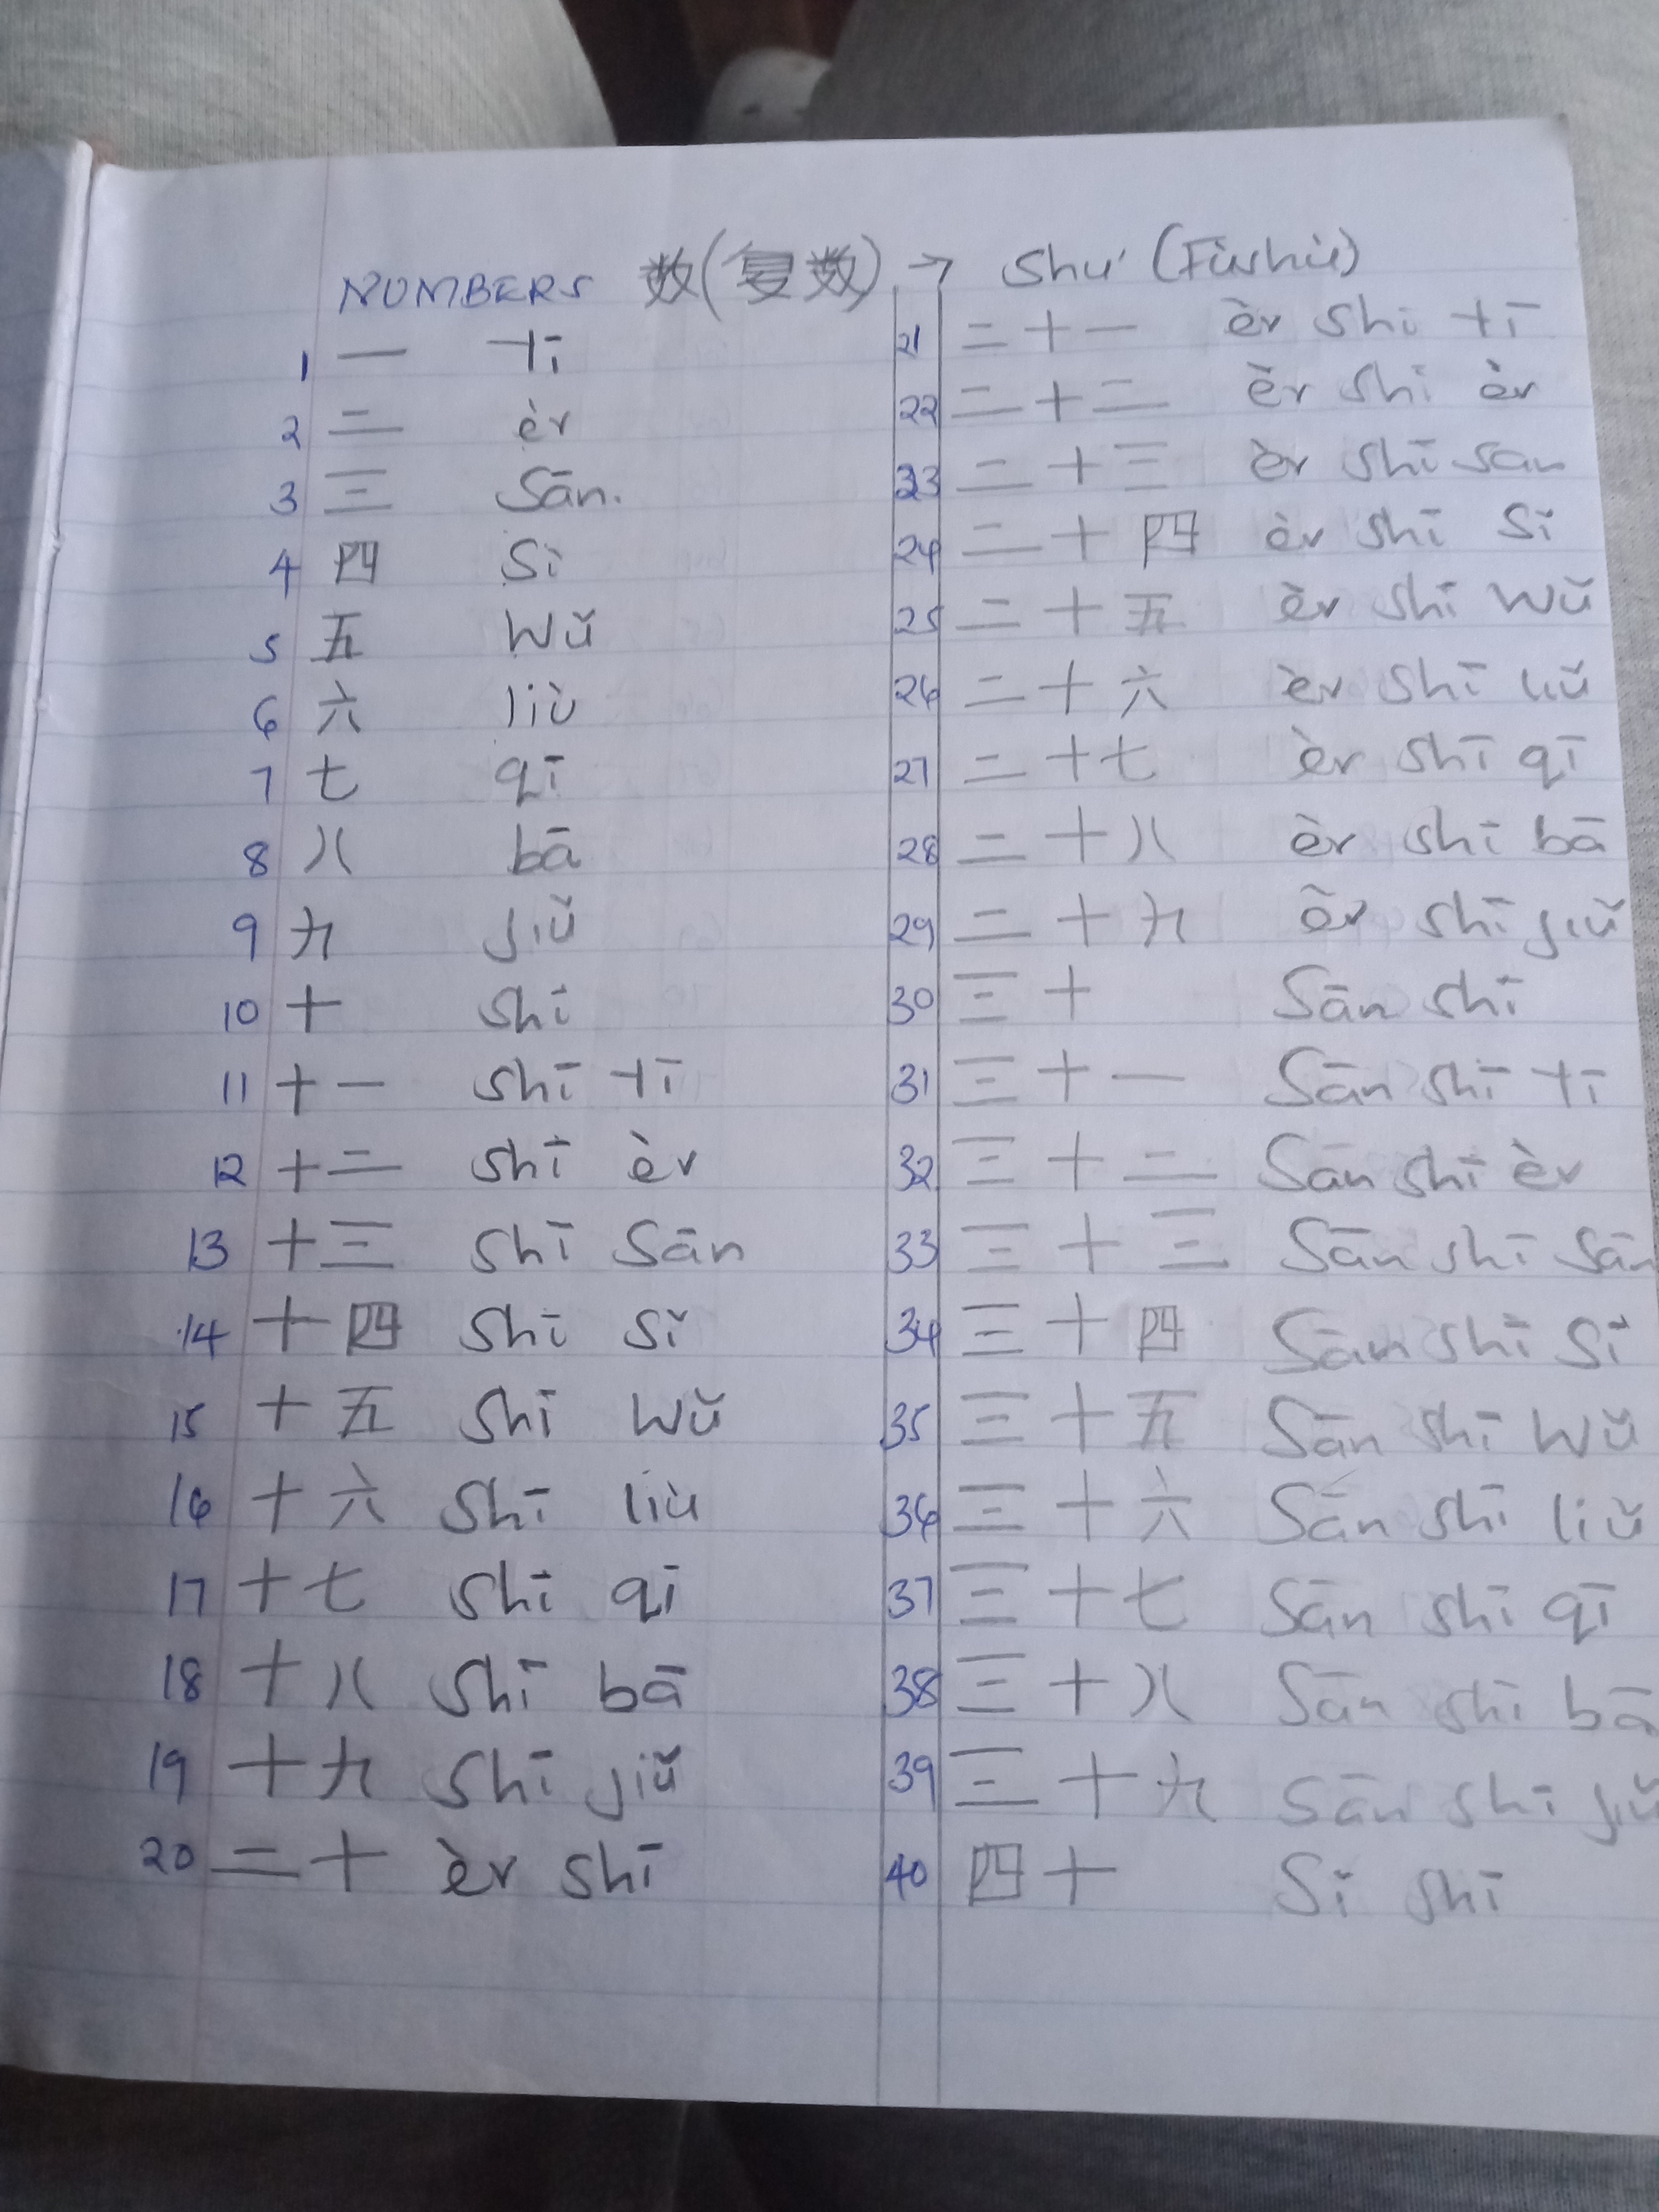 NUMBERS 数(复数) → Shù (Fùshù)
1 一 tī
2 二 èr
3 三 Sān.
4 四 Sì
5 五 Wǔ
6 六 liù
7 七 qī
8 八 bā
9 九 jiǔ
10 十 shī
11 十一 shī tī
12 十二 shī èr
13 十三 shī Sān
14 十四 shī Sǐ
15 十五 shī Wǔ
16 十六 shī liù
17 十七 shī qī
18 十八 shī bā
19 十九 shī jiǔ
20 二十 èr shī
21 二十一 èr shī tī
22 二十二 èr shī èr
23 二十三 èr shī san
24 二十四 èr shī Sǐ
25 二十五 èr shī Wǔ
26 二十六 èr shī liǔ
27 二十七 èr shī qī
28 二十八 èr shī bā
29 二十九 èr shī jiǔ
30 三十 Sān shī
31 三十一 Sān shī tī
32 三十二 Sān shī èr
33 三十三 Sān shī Sān
34 三十四 Sān shī Sǐ
35 三十五 Sān shī Wǔ
36 三十六 Sān shī liǔ
37 三十七 Sān shī qī
38 三十八 Sān shī bā
39 三十九 Sān shī jiǔ
40 四十 Sǐ shī